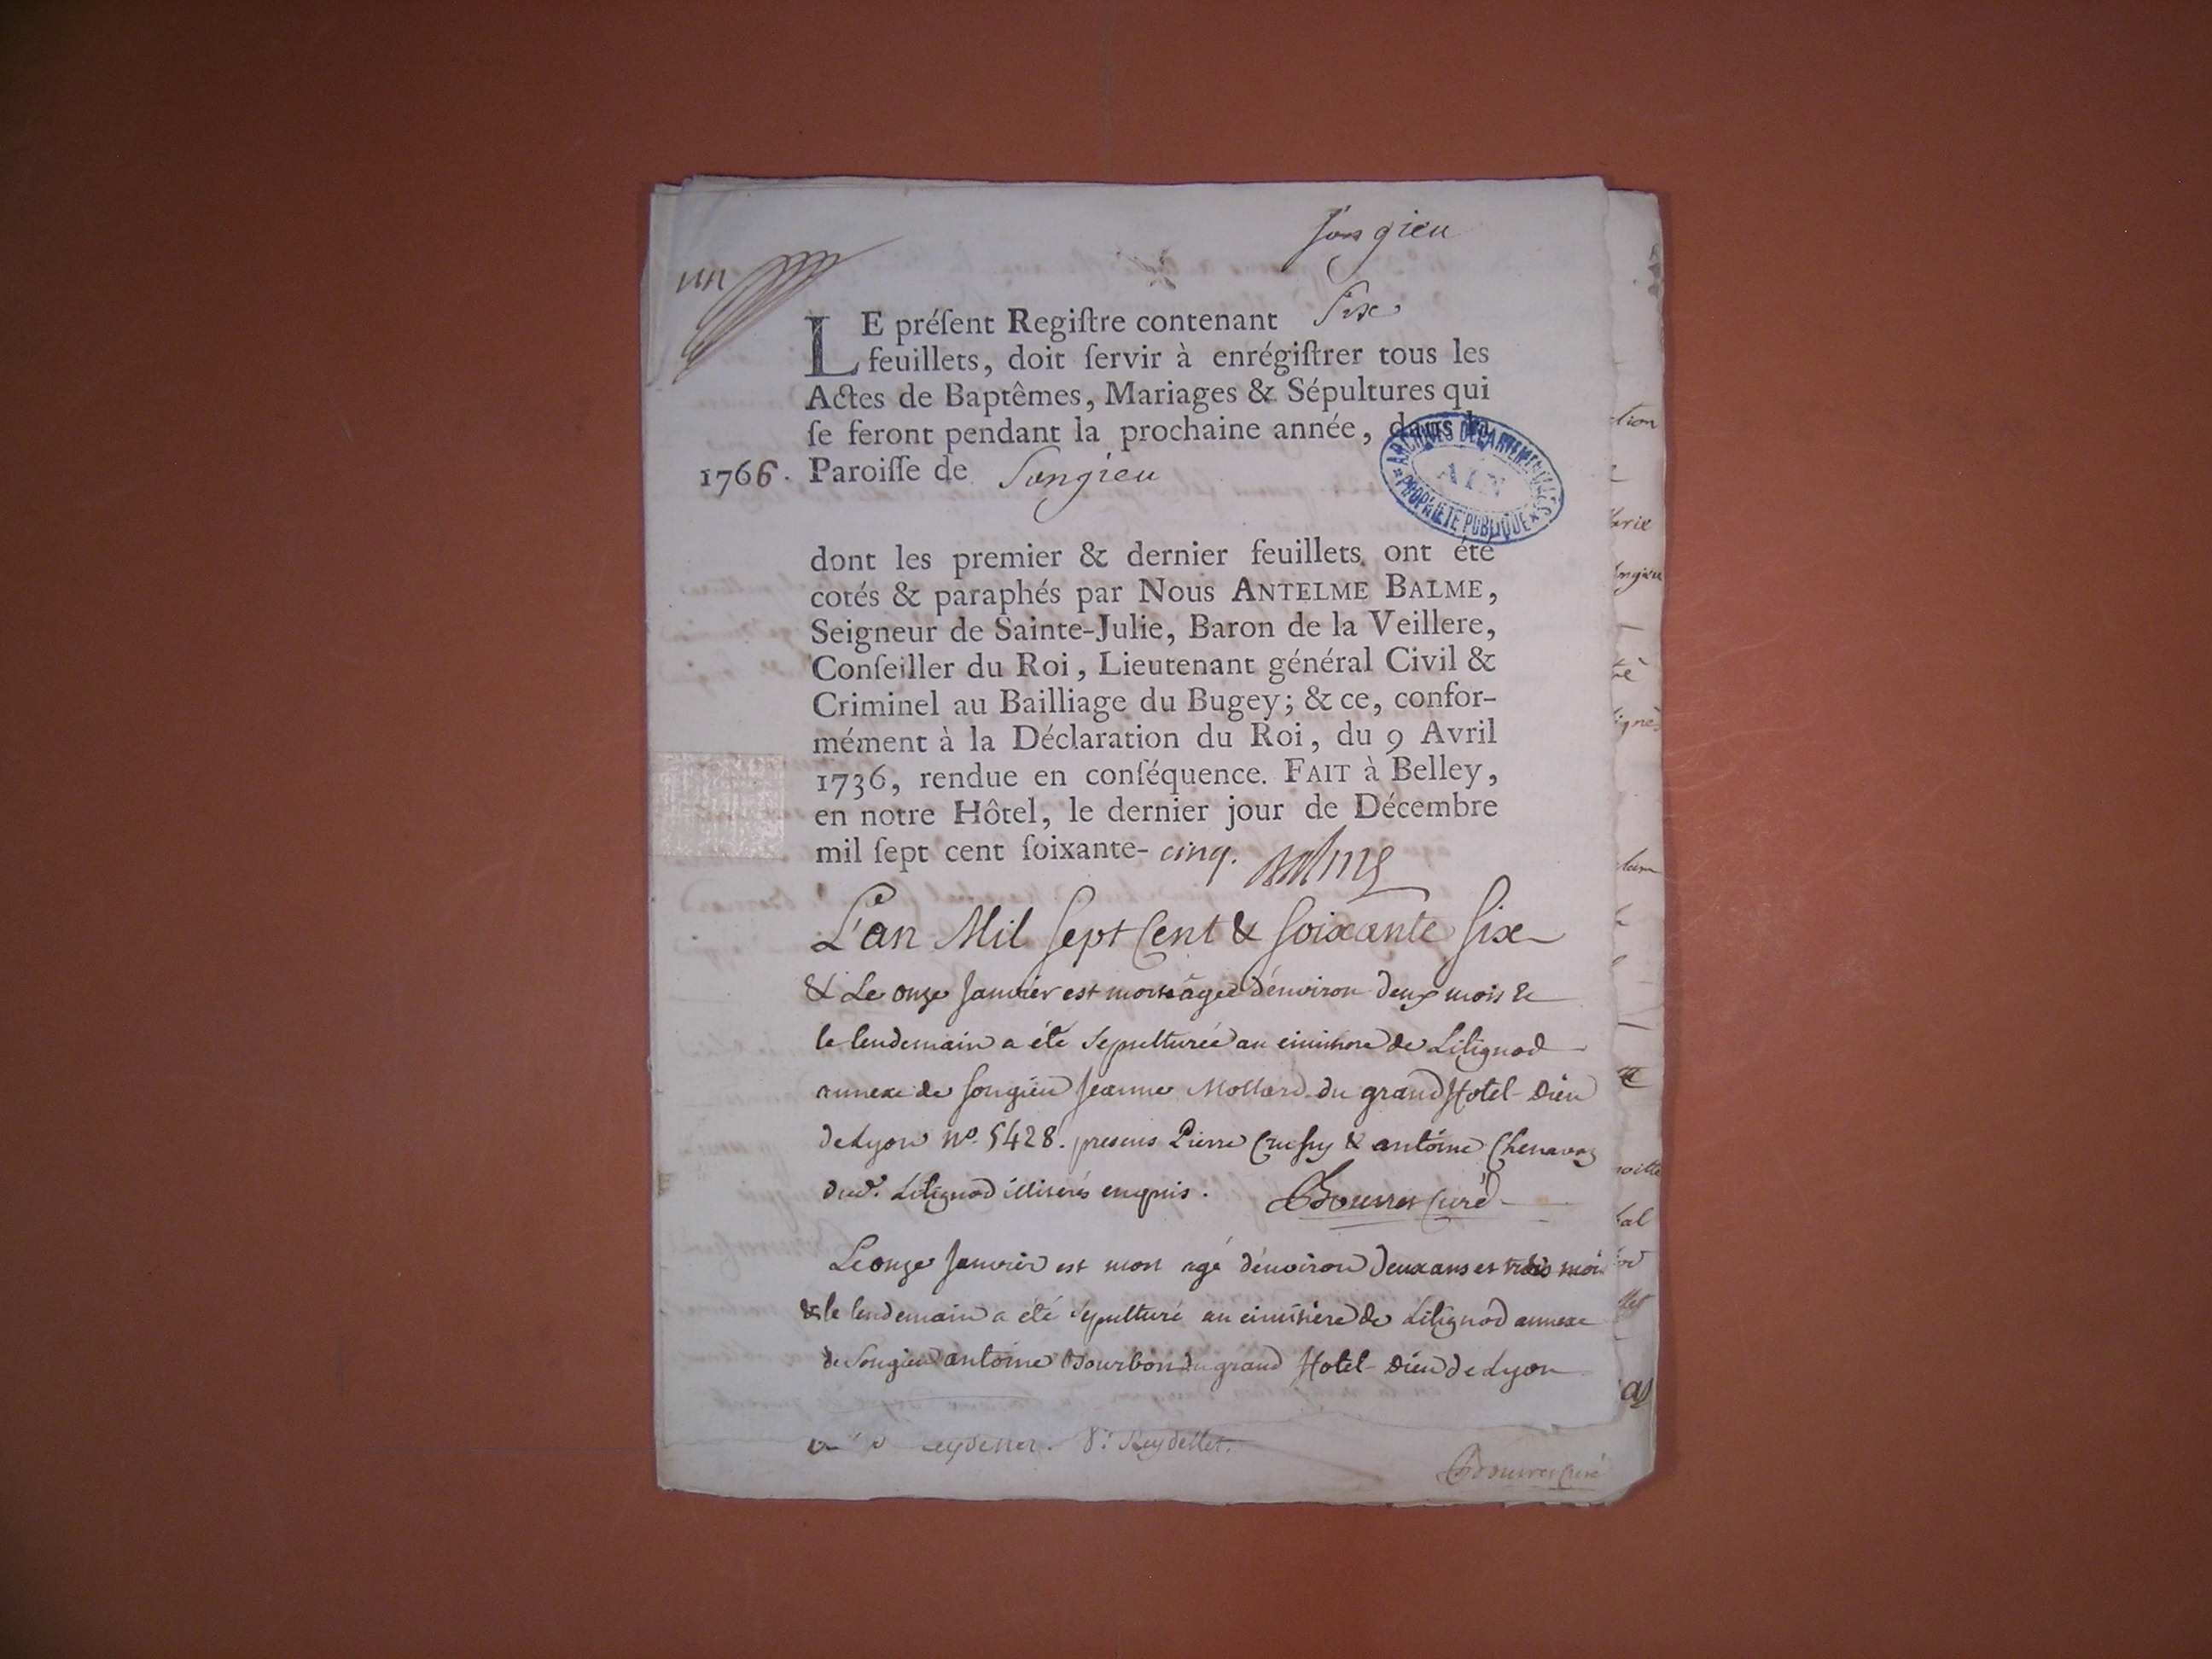 Songieu
un
LE préſent Regiſtre contenant Six
feuillets, doit ſervir à enrégiſtrer tous les
Actes de Baptêmes, Mariages & Sépultures qui
ſe feront pendant la prochaine année, dans la
1766. Paroiſſe de Songieu
ARCHIVES DÉPARTEMENTALES
AIN
PROPRIÉTÉ PUBLIQUE
dont les premier & dernier feuillets ont été
cotés & paraphés par Nous ANTELME BALME,
Seigneur de Sainte-Julie, Baron de la Veillere,
Conſeiller du Roi, Lieutenant général Civil &
Criminel au Bailliage du Bugey; & ce, confor-
mément à la Déclaration du Roi, du 9 Avril
1736, rendue en conſéquence. FAIT à Belley,
en notre Hôtel, le dernier jour de Décembre
mil ſept cent ſoixante-cinq. Balme
L'an Mil Sept Cent & Soixante Six
& Le onze Janvier est morte agée d'environ deux mois &
le lendemain a été sepulturée au cimitiere de Lilignod
annexe de Songieu Jeanne Mollard du grand Hotel-Dieu
de Lyon n°. 5428. presens Pierre & antoine Chenavaz
dud. Lilignod illiterés enquis. curé
Le onze Janvier est mort agé d'environ deux ans et trois mois
& le lendemain a été sépulturé au cimitière de Lilignod annexe
de Songieu antoine Bourbon du grand Hotel-Dieu de Lyon
Reydellet.
curé